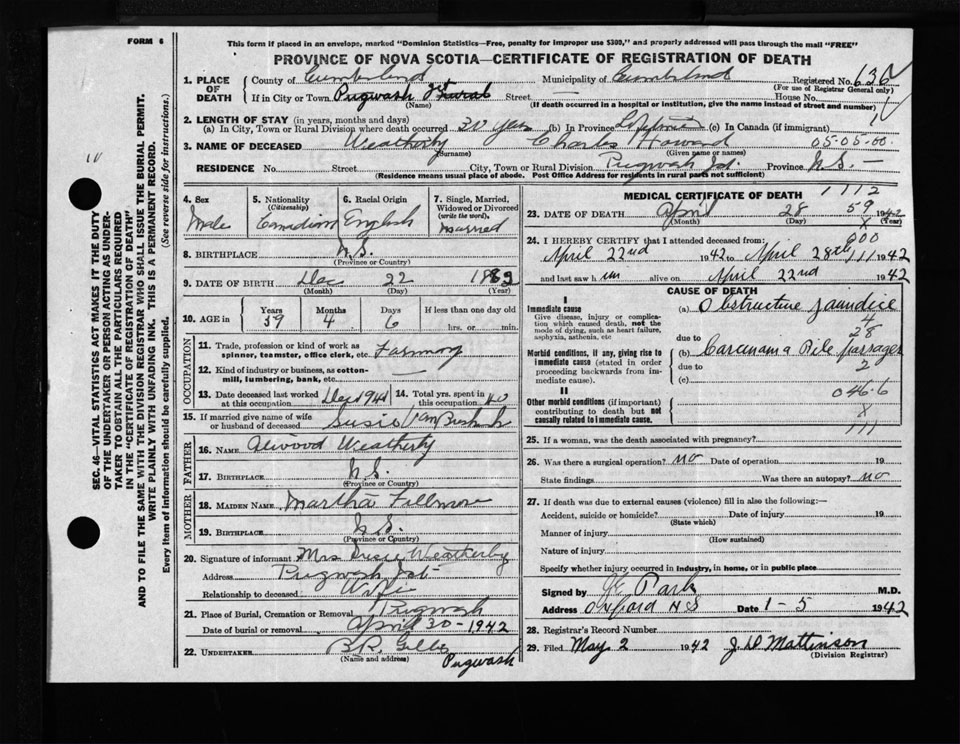 FORM 6
This form if placed in an envelope, marked "Dominion Statistics—Free, penalty for improper use $300," and properly addressed will pass through the mail "FREE"
PROVINCE OF NOVA SCOTIA—CERTIFICATE OF REGISTRATION OF DEATH
SEC. 46—VITAL STATISTICS ACT MAKES IT THE DUTY
OF THE UNDERTAKER OR PERSON ACTING AS UNDER-
TAKER TO OBTAIN ALL THE PARTICULARS REQUIRED
IN THE "CERTIFICATE OF REGISTRATION OF DEATH"
AND TO FILE THE SAME WITH THE DIVISION REGISTRAR WHO SHALL ISSUE THE BURIAL PERMIT.
WRITE PLAINLY WITH UNFADING INK. THIS IS A PERMANENT RECORD.
Every item of information should be carefully supplied. (See reverse side for instructions.)
1. PLACE OF DEATH County of Cumberland Municipality of Cumberland Registered No. 636
(For use of Registrar General only)
If in City or Town Pugwash Jct Rural Street — House No.
(Name) (If death occurred in a hospital or institution, give the name instead of street and number)
2. LENGTH OF STAY (in years, months and days)
(a) In City, Town or Rural Division where death occurred 30 years (b) In Province Lifetime (c) In Canada (if immigrant)
3. NAME OF DECEASED Weatherby Charles Howard 05-05-00
(Surname) (Given name or names)
RESIDENCE No. Street City, Town or Rural Division Pugwash Jct. Province N.S. —
(Residence means usual place of abode. Post Office Address for residents in rural parts not sufficient)
4. Sex Male
5. Nationality (Citizenship) Canadian
6. Racial Origin English
7. Single, Married, Widowed or Divorced (write the word) Married
8. BIRTHPLACE N.S.
(Province or Country)
9. DATE OF BIRTH Dec 22 1882
(Month) (Day) (Year)
10. AGE in Years Months Days If less than one day old
59 4 6 hrs. or min.
OCCUPATION
11. Trade, profession or kind of work as spinner, teamster, office clerk, etc. Farming
12. Kind of industry or business, as cotton-mill, lumbering, bank, etc. —
13. Date deceased last worked at this occupation Dec 1941
14. Total yrs. spent in this occupation 40
15. If married give name of wife or husband of deceased Susie Van Buskirk
FATHER
16. NAME Atwood Weatherby
17. BIRTHPLACE N.S.
(Province or Country)
MOTHER
18. MAIDEN NAME Martha Fillmore
19. BIRTHPLACE N.S.
(Province or Country)
20. Signature of informant Mrs Susie Weatherby
Address Pugwash Jct
Relationship to deceased Wife
21. Place of Burial, Cremation or Removal Pugwash
Date of burial or removal April 30 - 1942
22. UNDERTAKER B.R. Pugwash
(Name and address)
MEDICAL CERTIFICATE OF DEATH 1112
23. DATE OF DEATH April 28 59 1942
(Month) (Day) (Year)
24. I HEREBY CERTIFY that I attended deceased from:
April 22nd 1942 to April 28th 1942
and last saw him alive on April 22nd 1942
CAUSE OF DEATH
I
Immediate cause
Give disease, injury or complication which caused death, not the mode of dying, such as heart failure, asphyxia, asthenia, etc
(a) Obstructive Jaundice
4
28
due to
Morbid conditions, if any, giving rise to immediate cause (stated in order proceeding backwards from immediate cause).
(b) Carcinoma Bile Passages
due to 2
(c)
II
Other morbid conditions (if important) contributing to death but not causally related to immediate cause.
046.6
X
111
25. If a woman, was the death associated with pregnancy?
26. Was there a surgical operation? no Date of operation 19
State findings Was there an autopsy? no
27. If death was due to external causes (violence) fill in also the following:—
Accident, suicide or homicide? Date of injury 19
(State which)
Manner of injury
(How sustained)
Nature of injury
Specify whether injury occurred in industry, in home, or in public place
Signed by Park M.D.
Address Oxford N S Date 1-5 1942
28. Registrar's Record Number
29. Filed May 2 1942 J. D. Mattinson
(Division Registrar)